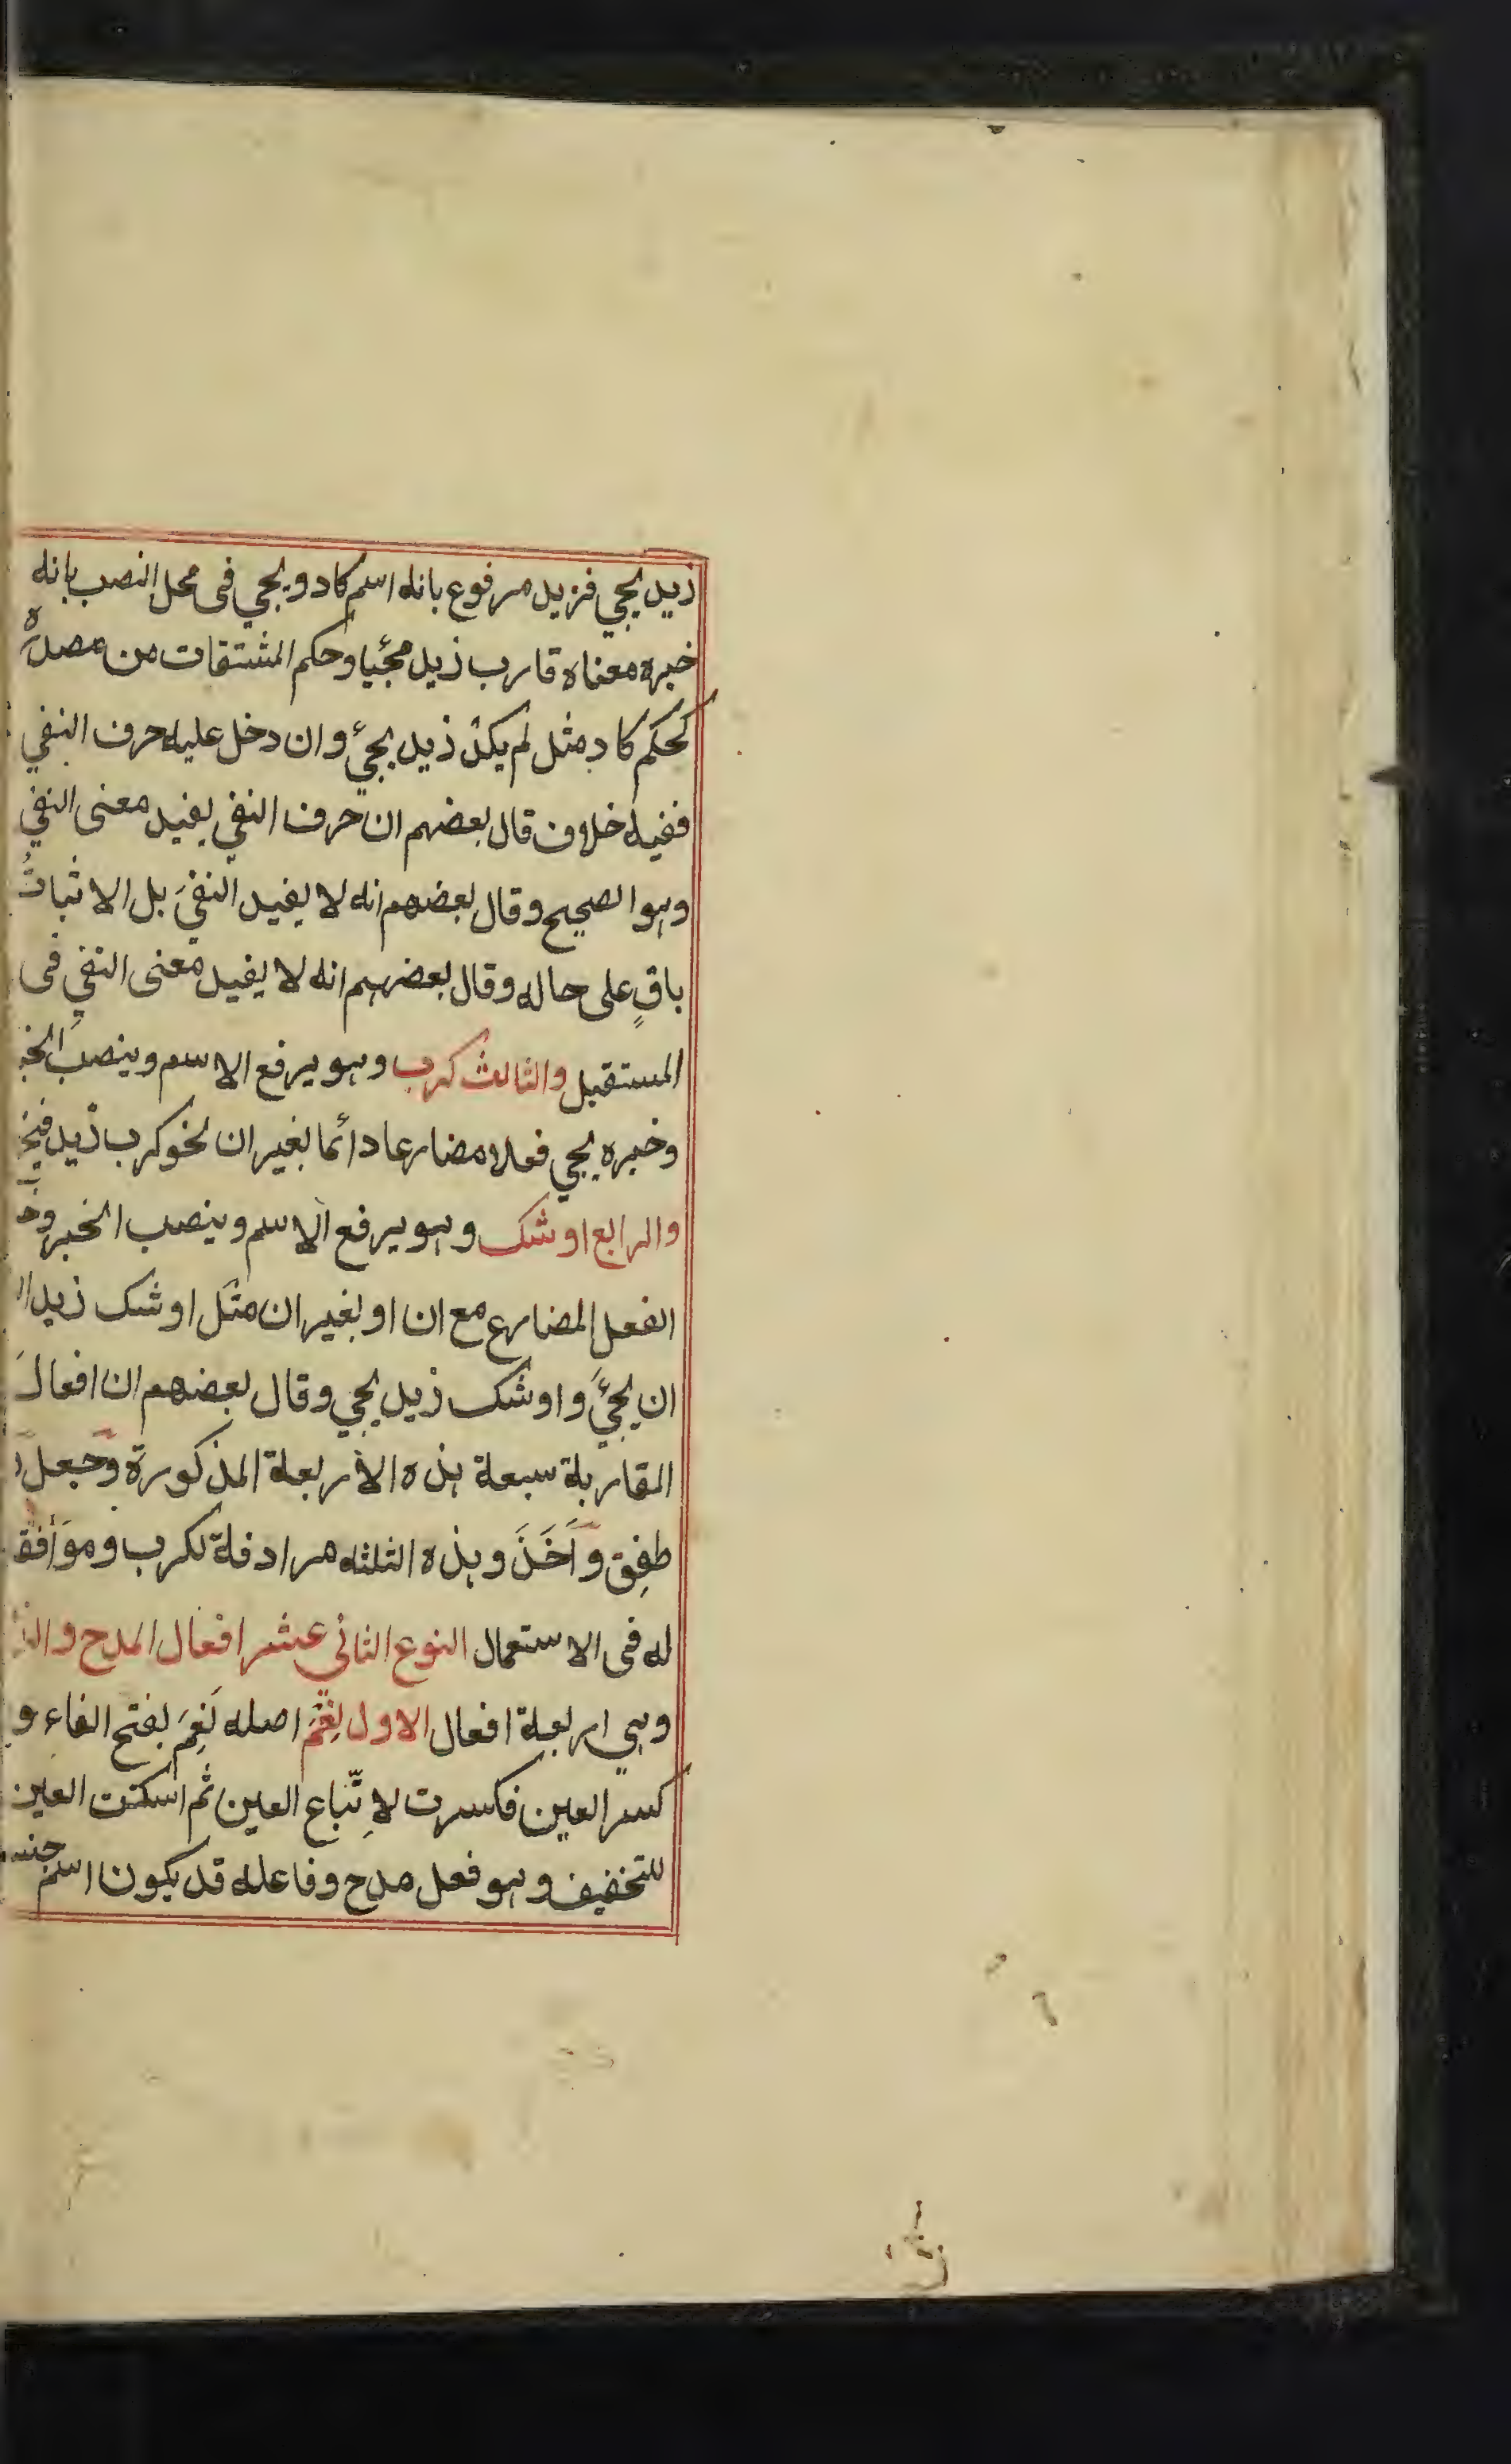 زيد يجي فزيد مرفوع بانه اسم كاد ويجي فى محل النصب بانه
خبره معناه قارب زيد مجئيا وحكم المشتقات من مصدره
كحكم كاد مثل لم يكد زيد يجئ وان دخل عليه حرف النفي
ففيه خلاف قال بعضهم ان حرف النفي يفيد معنى النفي
وهو الصحيح وقال بعضهم انه لا يفيد النفيَ بل الاثباتُ
باقٍ على حاله وقال بعضهم انه لا يفيد معنى النفي فى
المستقبل والثالث كرب وهو يرفع الاسم وينصبَ
وخبره يجي فعلا مضارعا دائما بغير ان نحو كرب زيد
والرابع اوشك وهو يرفع الاسم وينصب الخبر
الفعل المضارع مع ان او بغير ان مثل اوشك زيد
ان يجئَ واوشك زيد يجي وقال بعضهم ان افعالَ
المقاربة سبعة هذه الأربعة المذكورة وجعل
طفِق وأَخَذَ وهذه الثلثه مرادفة لكرب وموافق
له فى الاستعمال النوع الثاني عشر افعال المدح
وهي اربعة افعال الاول نِعْمَ اصله نَعِمَ بفتح الفاء و
كسر العين فكسرت لاِتّباع العين ثم اسكنت العين
للتخفيف وهو فعل مدح وفاعله قد يكون اسم جنس